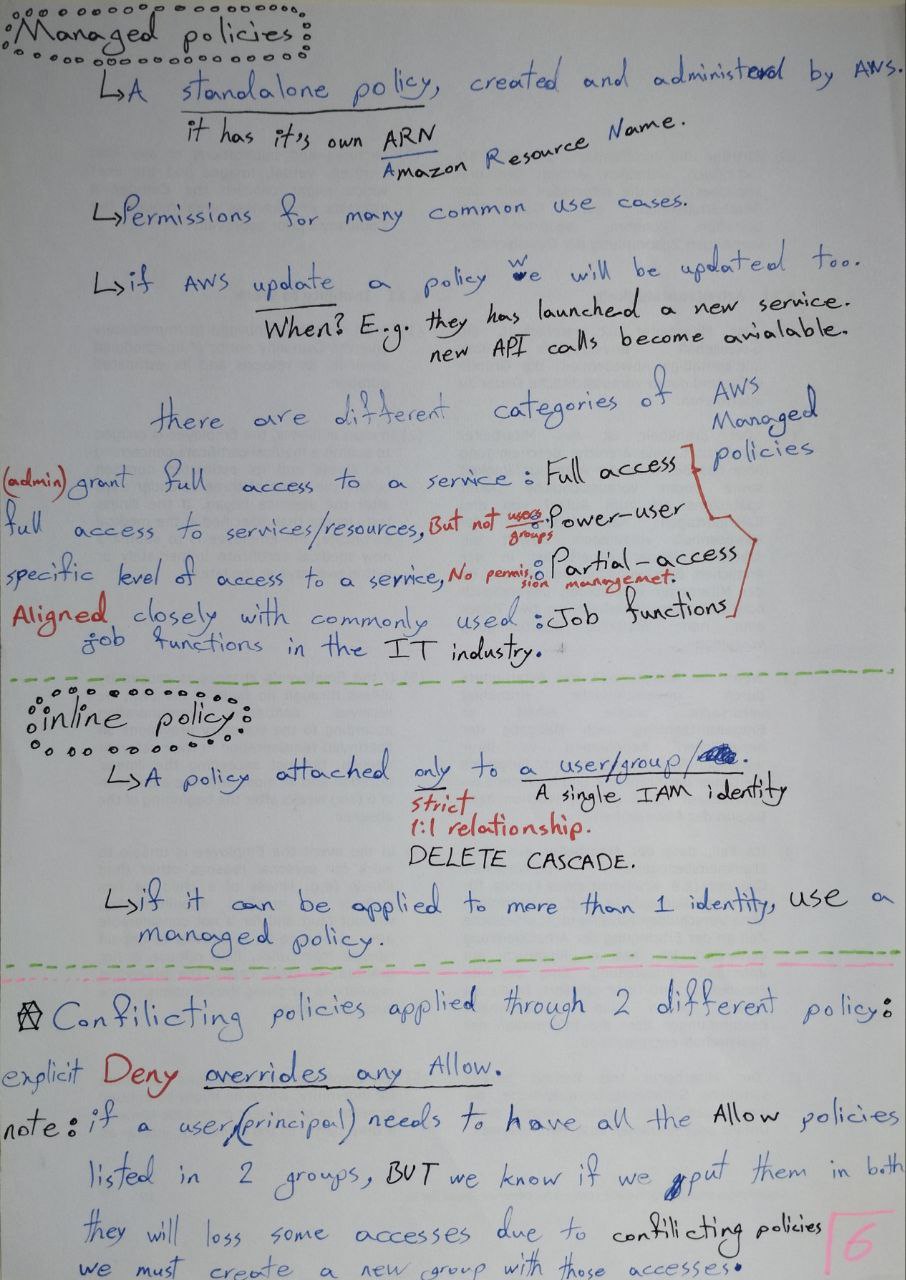 Managed policies
↳A standalone policy, created and administerd by AWS.
it has it's own ARN
Amazon Resource Name.
↳Permissions for many common use cases.
↳if AWS update a policy we will be updated too.
When? E.g. they has launched a new service.
new API calls become avialable.
there are different categories of AWS
Managed
policies
(admin) grant full access to a service : Full access
full access to services/resources, But not users : Power-user
groups
specific level of access to a service, No permis : Partial-access
sion managemet.
Aligned closely with commonly used : Job functions
job functions in the IT industry.
inline policy
↳A policy attached only to a user/group/
strict A single IAM identity
1:1 relationship.
DELETE CASCADE.
↳if it can be applied to more than 1 identity, use a
managed policy.
Confilicting policies applied through 2 different policy:
explicit Deny overrides any Allow.
note: if a user(principal) needs to have all the Allow policies
listed in 2 groups, BUT we know if we put them in both
they will loss some accesses due to confilicting policies
we must create a new group with those accesses.
6